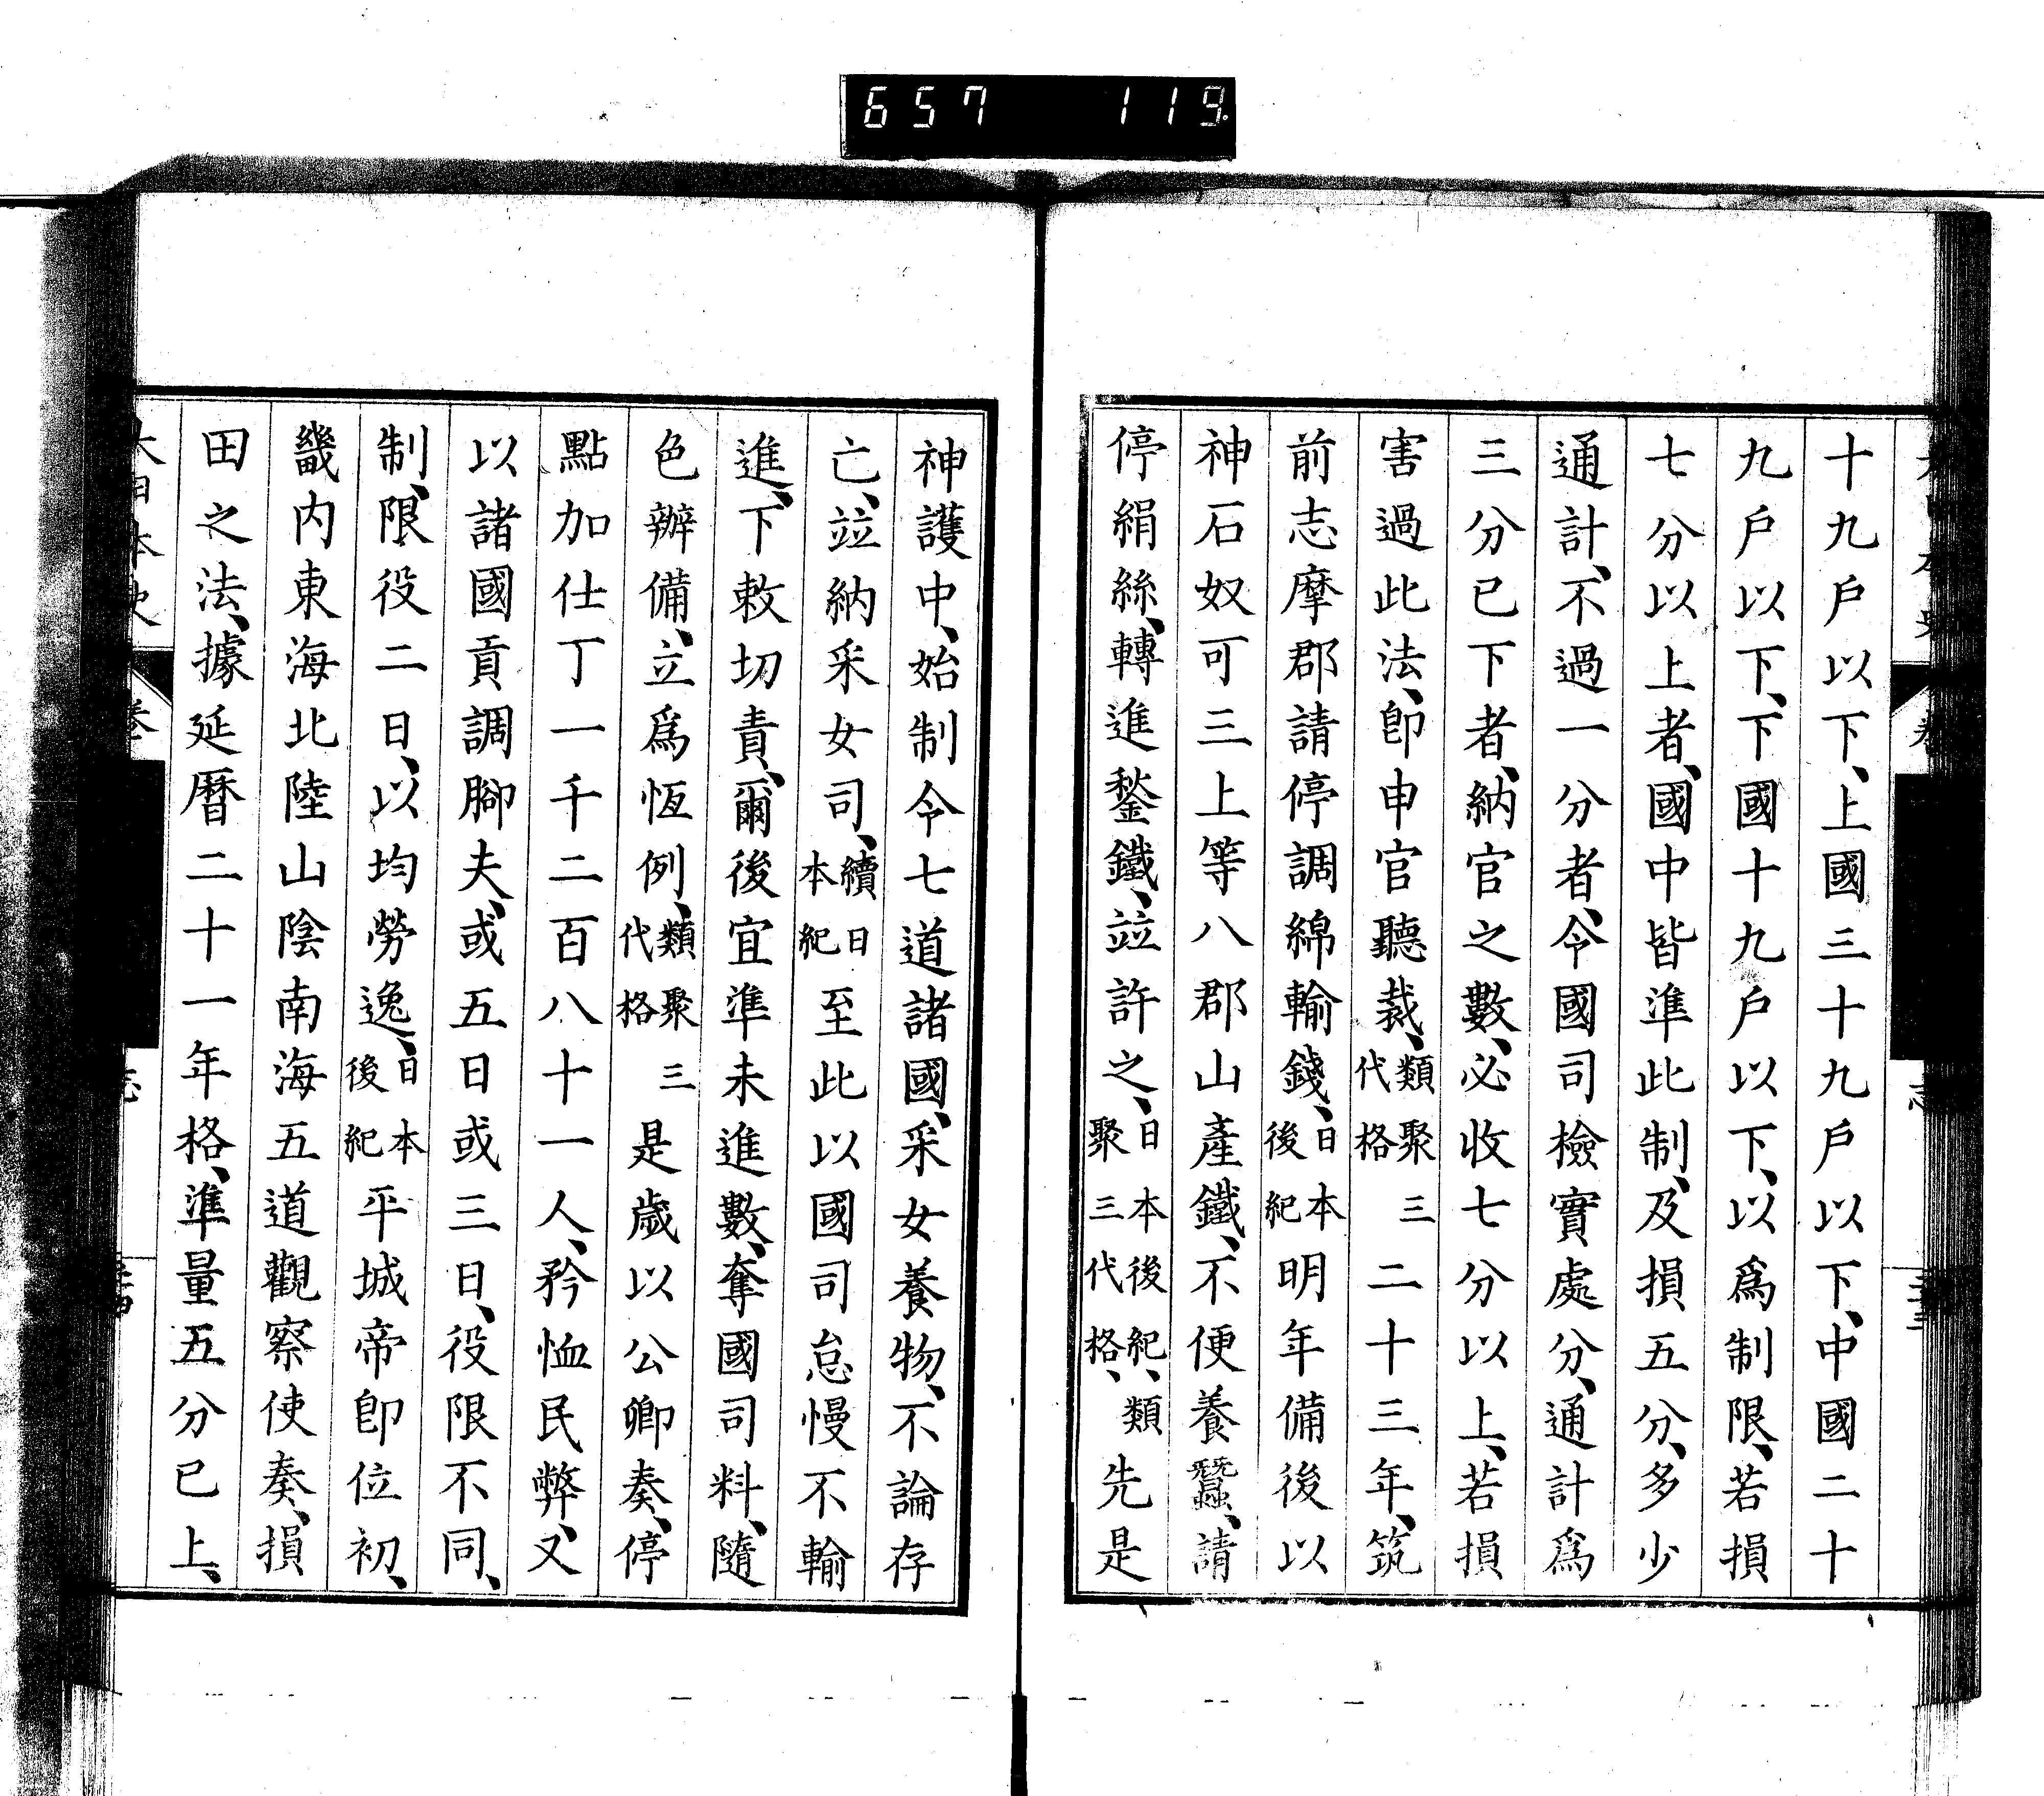 657 119
十九戶以下、上國三十九戶以下、中國二十
九戶以下、下國十九戶以下、以爲制限、若損
七分以上者、國中皆準此制、及損五分、多少
通計、不過一分者、令國司檢實處分、通計爲
三分已下者、納官之數、必收七分以上、若損
害過此法、卽申官聽裁、類聚三代格二十三年、筑
前志摩郡請停調綿輸錢、日本後紀明年備後以
神石奴可三上等八郡山產鐵、不便養蠶、請
停絹絲、轉進鍫鐵、竝許之、日本後紀、類聚三代格、先是
神護中、始制令七道諸國、采女養物、不論存
亡、竝納采女司、續日本紀至此以國司怠慢不輸
進、下敕切責、爾後宜準未進數、奪國司料、隨
色辦備、立爲恆例、類聚三代格是歲以公卿奏、停
點加仕丁一千二百八十一人、矜恤民弊、又
以諸國貢調腳夫、或五日或三日、役限不同、
制、限役二日、以均勞逸、日本後紀平城帝卽位初、
畿內東海北陸山陰南海五道觀察使奏、損
田之法、據延曆二十一年格、準量五分已上、
大日本史 卷 志